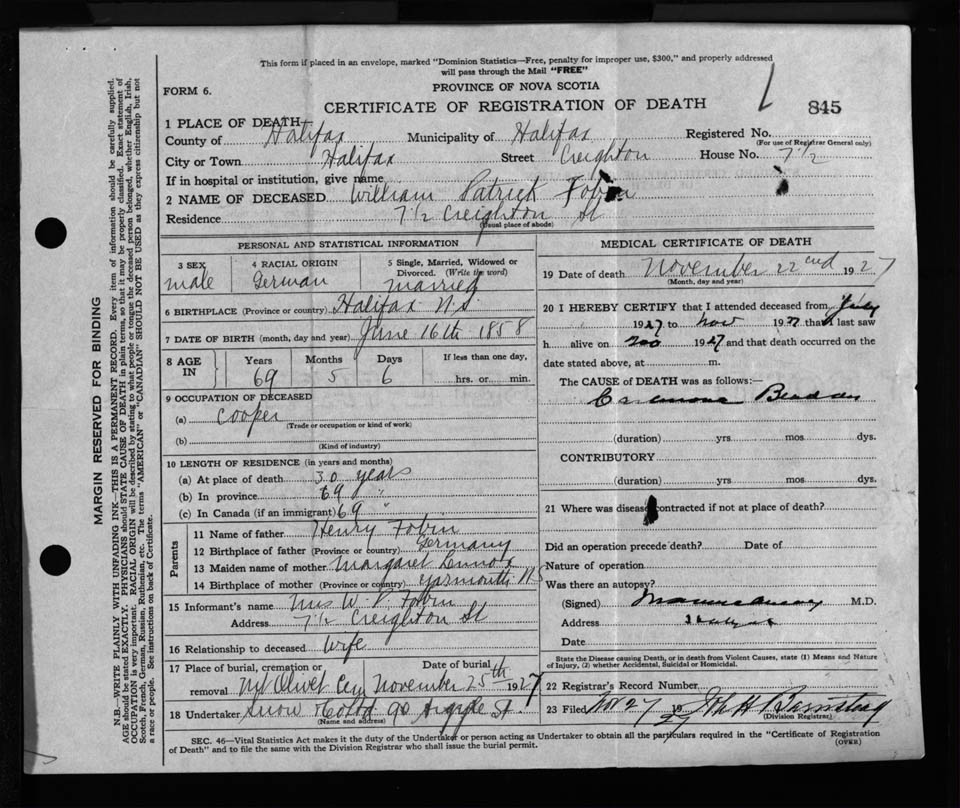 This form if placed in an envelope, marked "Dominion Statistics—Free, penalty for improper use, $300," and properly addressed
will pass through the Mail "FREE"
FORM 6.
PROVINCE OF NOVA SCOTIA
CERTIFICATE OF REGISTRATION OF DEATH
845
1 PLACE OF DEATH
County of Halifax Municipality of Halifax Registered No.
(For use of Registrar General only)
City or Town Halifax Street Creighton House No. 7 1/2
If in hospital or institution, give name
2 NAME OF DECEASED William Patrick Tobin
Residence 7 1/2 Creighton St
(Usual place of abode)
PERSONAL AND STATISTICAL INFORMATION
3 SEX male
4 RACIAL ORIGIN German
5 Single, Married, Widowed or Divorced. (Write the word) married
6 BIRTHPLACE (Province or country) Halifax N.S.
7 DATE OF BIRTH (month, day and year) June 16th 1858
8 AGE IN Years 69 Months 5 Days 6 If less than one day, hrs. or min.
9 OCCUPATION OF DECEASED
(a) Cooper
(Trade or occupation or kind of work)
(b)
(Kind of industry)
10 LENGTH OF RESIDENCE (in years and months)
(a) At place of death 30 years
(b) In province 69 "
(c) In Canada (if an immigrant) 69 "
Parents
11 Name of father Henry Tobin
12 Birthplace of father (Province or country) Germany
13 Maiden name of mother Margaret
14 Birthplace of mother (Province or country) Yarmouth NS
15 Informant's name Mrs W. P. Tobin
Address 7 1/2 Creighton St
16 Relationship to deceased Wife
17 Place of burial, cremation or removal Mt Olivet Cey Date of burial November 25th 1927
18 Undertaker Snow 90 Argyle St.
(Name and address)
MEDICAL CERTIFICATE OF DEATH
19 Date of death November 22nd 1927
(Month, day and year)
20 I HEREBY CERTIFY that I attended deceased from July
1927 to Nov 1927 that I last saw
h alive on Nov 1927 and that death occurred on the
date stated above, at m.
The CAUSE of DEATH was as follows:—
(duration) yrs mos dys.
CONTRIBUTORY
(duration) yrs mos dys.
21 Where was disease contracted if not at place of death?
Did an operation precede death? Date of
Nature of operation
Was there an autopsy?
(Signed) M.D.
Address Halifax
Date
State the Disease causing Death, or in death from Violent Causes, state (1) Means and Nature
of Injury, (2) whether Accidental, Suicidal or Homicidal.
22 Registered Record Number
23 Filed Nov 27 19 27
(Division Registrar)
SEC. 46—Vital Statistics Act makes it the duty of the Undertaker or person acting as Undertaker to obtain all the particulars required in the "Certificate of Registration
of Death" and to file the same with the Division Registrar who shall issue the burial permit.
(OVER)
MARGIN RESERVED FOR BINDING
N.B.—WRITE PLAINLY WITH UNFADING INK—THIS IS A PERMANENT RECORD. Every item of information should be carefully supplied.
AGE should be stated EXACTLY. PHYSICIANS should STATE CAUSE OF DEATH in plain terms, so that it may be properly classified. Exact statement of
OCCUPATION is very important. RACIAL ORIGIN will be described by stating to what people or tongue the deceased person belonged, whether English, Irish,
Scotch, French, German, Russian, Ruthenian, etc. The terms "AMERICAN" or "CANADIAN" SHOULD NOT BE USED as they express citizenship but not
a race or people. See instructions on back of Certificate.